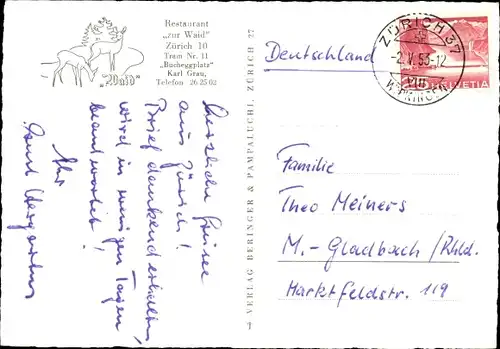 Restaurant
"zur Waid"
Zürich 10
Tram Nr. 11
"Bucheggplatz"
Karl Grau,
Telefon 26 25 02
"Waid"
Deutschland
ZÜRICH 37
-2.V.53-12
VIII
WIPKINGEN
HELVETIA
Herzliche Grüsse
aus Zürich!
Brief dankend erhalten,
wird in wenigen Tagen
beantwortet!
Ihr
VERLAG BERINGER & PAMPALUCHI, ZÜRICH 27
Familie
Theo Meiners
M.-Gladbach/Rhld.
Marktfeldstr. 119